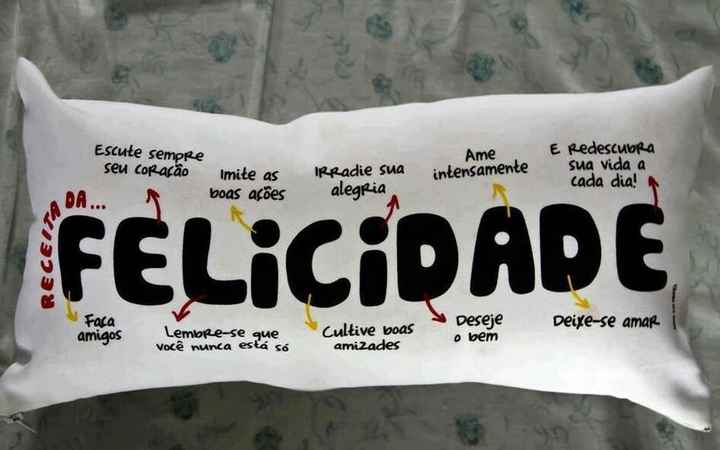 RECEITA DA...
Escute sempre
seu coração
Imite as
boas ações
Irradie sua
alegria
Ame
intensamente
E redescubra
sua vida a
cada dia!
FELiCiDADE
Faça
amigos
Lembre-se que
você nunca está só
Cultive boas
amizades
Deseje
o bem
Deixe-se amar